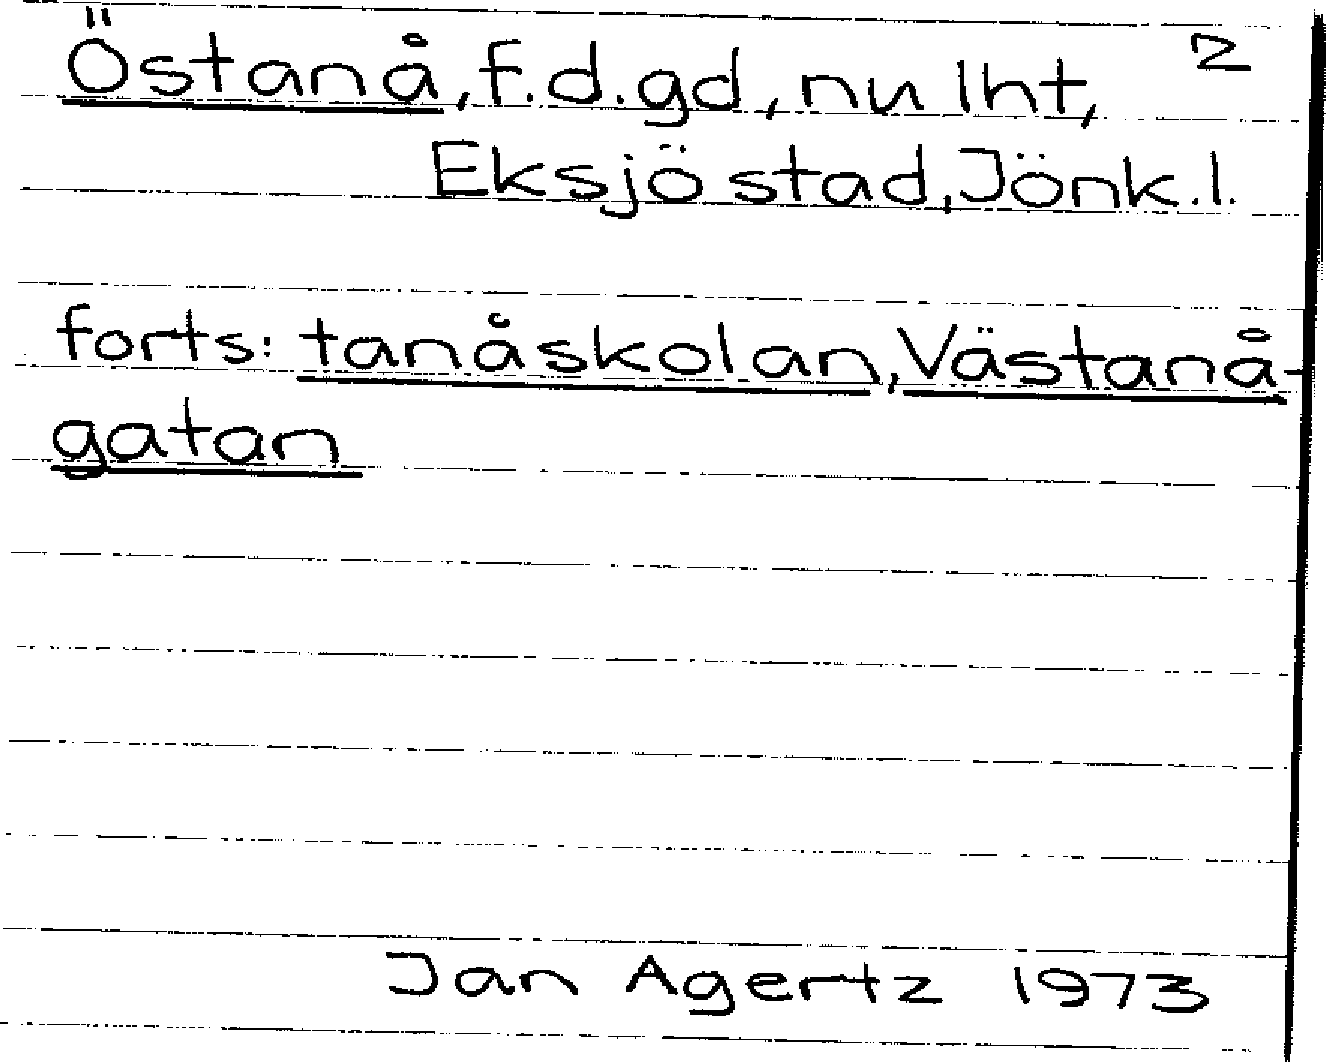 Östanå, f.d. gd, nu lht, 2
Eksjö stad, Jönk.l.
forts: tanåskolan, Västanå-
gatan
Jan Agertz 1973